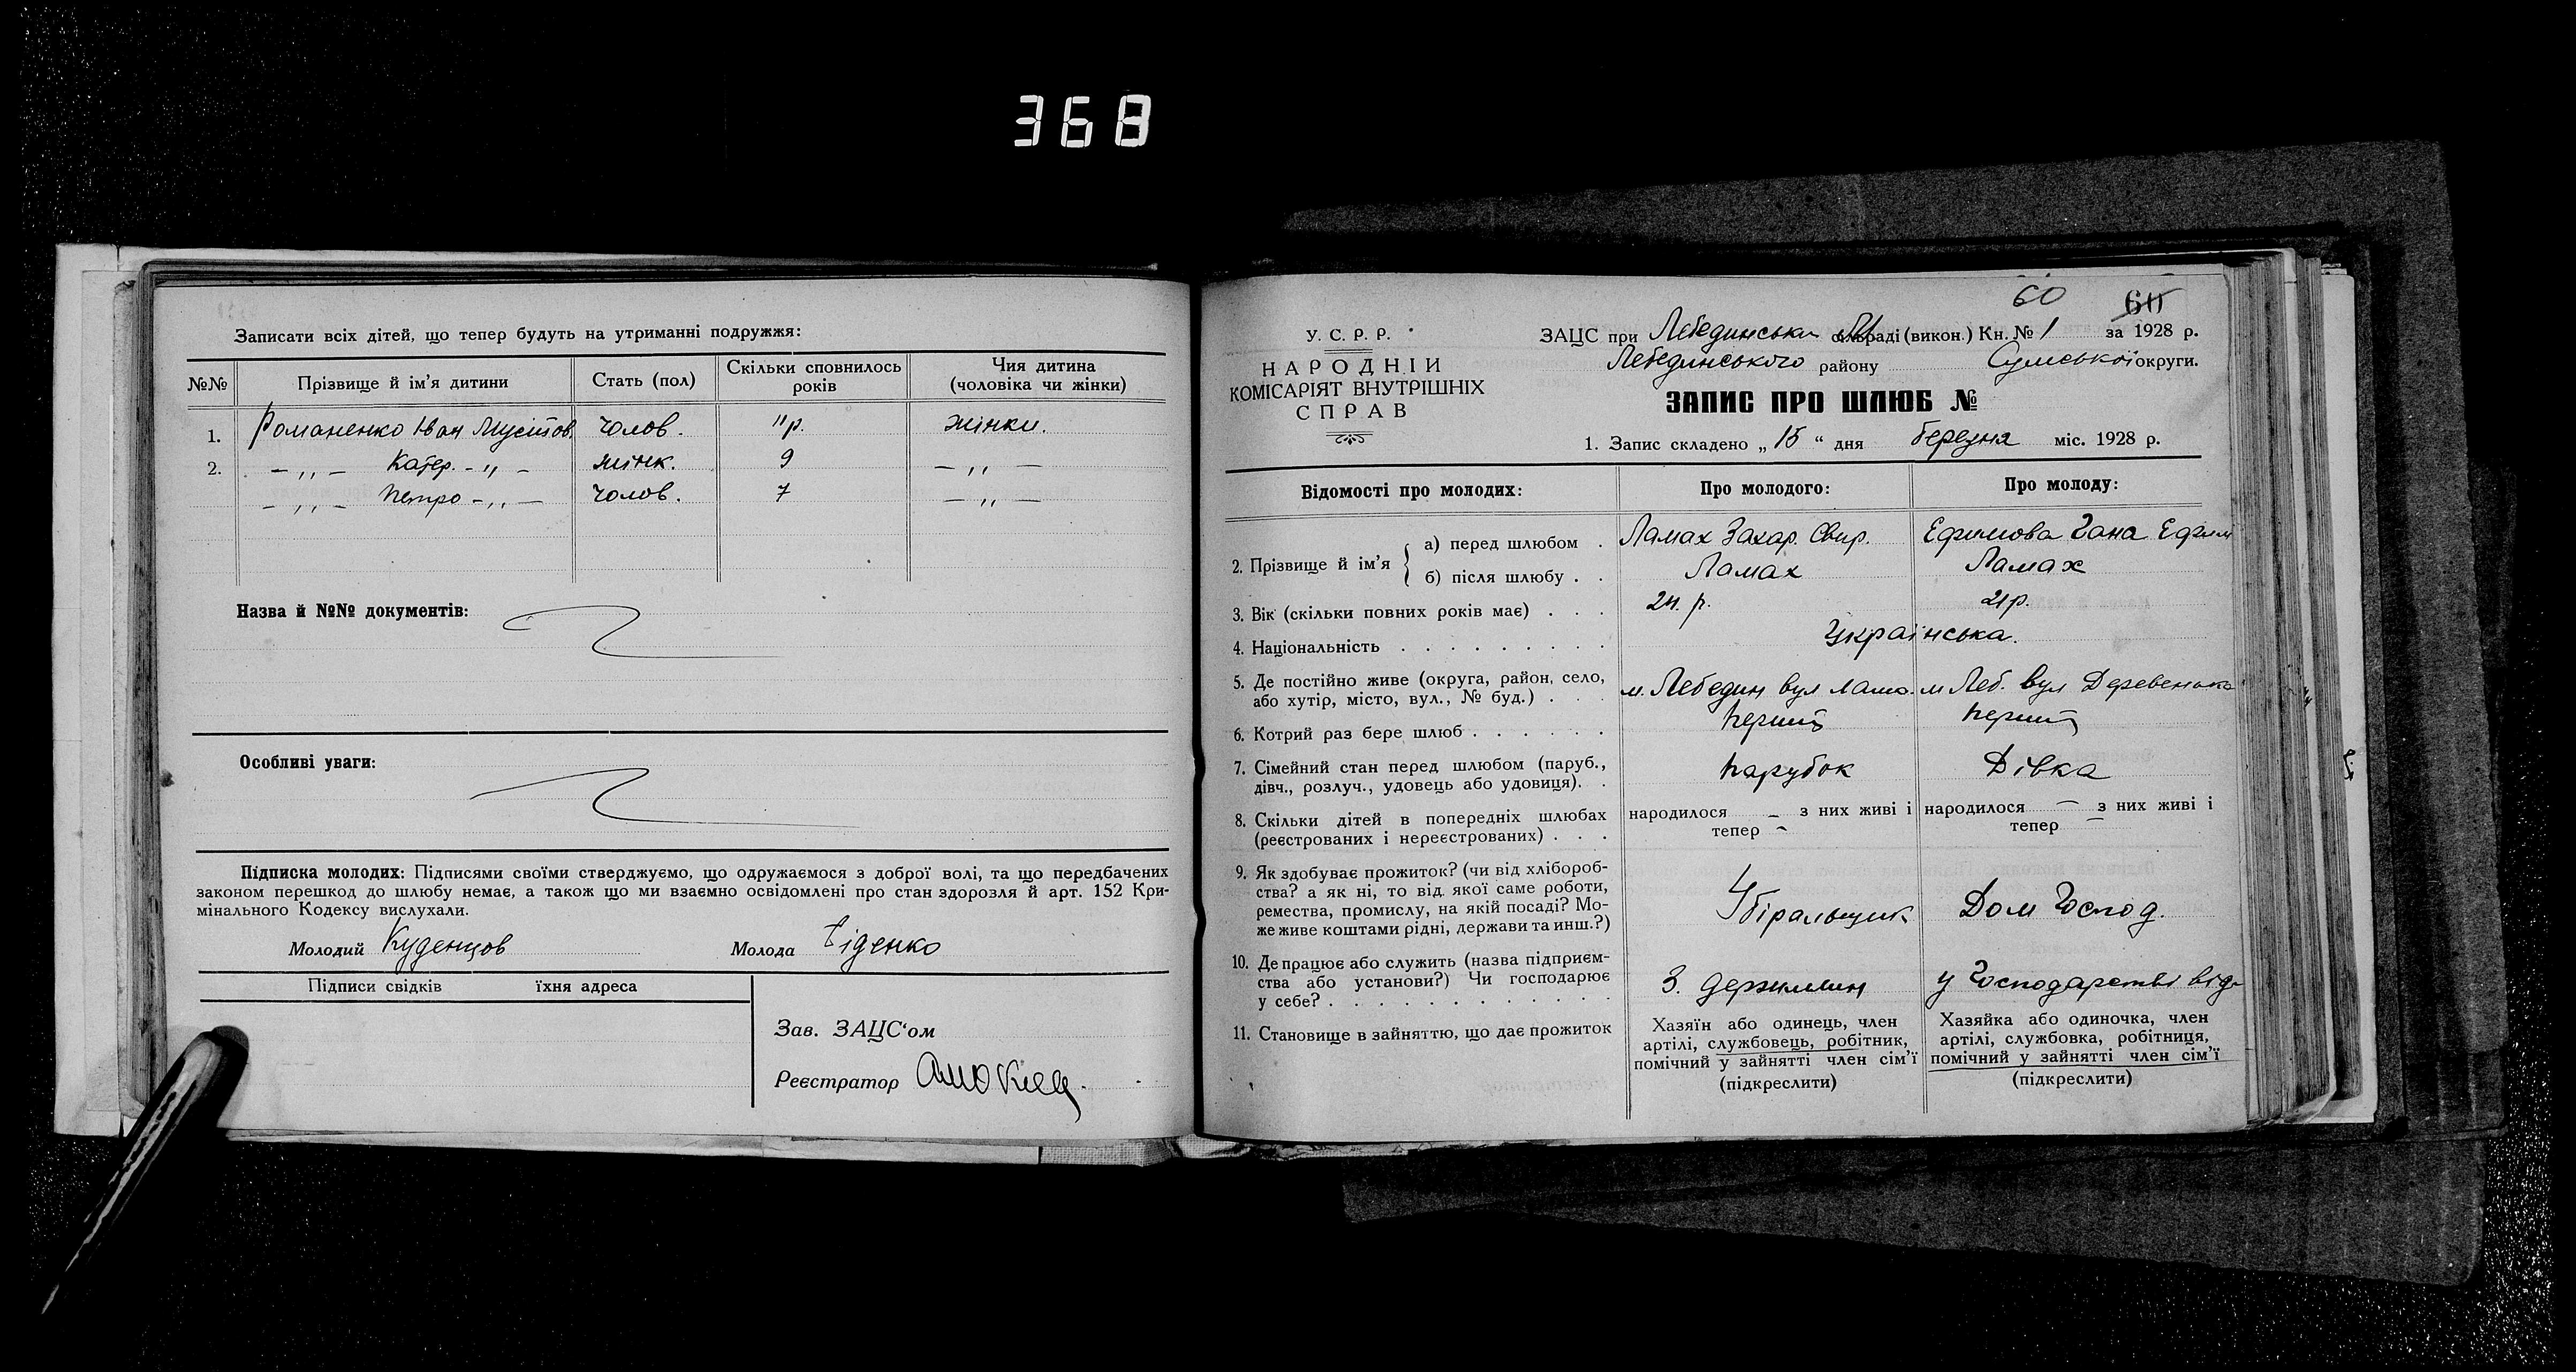 368
Записати всіх дітей, що тепер будуть на утриманні подружжя:
№№ Прізвище й ім'я дитини Стать (пол) Скільки сповнилось років Чия дитина (чоловіка чи жінки)
1. Романенко Іван Мусійов. Чолов. 11р. жінки.
2. —„— Катер. —„— жінк. 9 —„—
—„— Петро —„— Чолов. 7 —„—
Назва й №№ документів:
Особливі уваги:
Підписка молодих: Підписями своїми стверджуємо, що одружаємося з доброї волі, та що передбачених
законом перешкод до шлюбу немає, а також що ми взаємно освідомлені про стан здоровля й арт. 152 Кри-
мінального Кодексу вислухали.
Молодий Куденцов Молода Діденко
Підписи свідків їхня адреса
Зав. ЗАЦС'ом
Реєстратор
60 60
У. С. Р. Р.
НАРОДНІЙ
КОМІСАРІЯТ ВНУТРІШНІХ
СПРАВ
ЗАЦС при Лебединськ сільраді (викон.) Кн. № 1 за 1928 р.
Лебединського району Сумської округи.
ЗАПИС ПРО ШЛЮБ №
1. Запис складено „ 15 “ дня березня міс. 1928 р.
Відомості про молодих: Про молодого: Про молоду:
2. Прізвище й ім'я { а) перед шлюбом . Ламах Захар. Свир. Ефимова Гана Ефим
б) після шлюбу . . Ламах Ламах
3. Вік (скільки повних років має) . . . 24. р. 21р.
4. Національність . . . . . . . . . Українська.
5. Де постійно живе (округа, район, село,
або хутір, місто, вул., № буд.) . . . м. Лебедин вул Лама. м Леб. вул Деревенська
6. Котрий раз бере шлюб . . . . . . Перший Перший
7. Сімейний стан перед шлюбом (паруб.,
дівч., розлуч., удовець або удовиця). . Парубок Дівка
8. Скільки дітей в попередніх шлюбах
(реєстрованих і нереєстрованих) . . .
народилося – з них живі і
тепер –
народилося – з них живі і
тепер –
9. Як здобуває прожиток? (чи від хлібороб-
ства? а як ні, то від якої саме роботи,
ремества, промислу, на якій посаді? Мо-
же живе коштами рідні, держави та инш.?)
Убіральщик Дом Господ.
10. Де працює або служить (назва підприєм-
ства або установи?) Чи господарює
у себе? . . . . . . . . . . . .
З. Держмлин у Господарстві від-
11. Становище в зайняттю, що дає прожиток
Хазяїн або одинець, член
артілі, службовець, робітник,
помічний у зайнятті член сім'ї
(підкреслити)
Хазяйка або одиночка, член
артілі, службовка, робітниця,
помічний у зайнятті член сім'ї
(підкреслити)